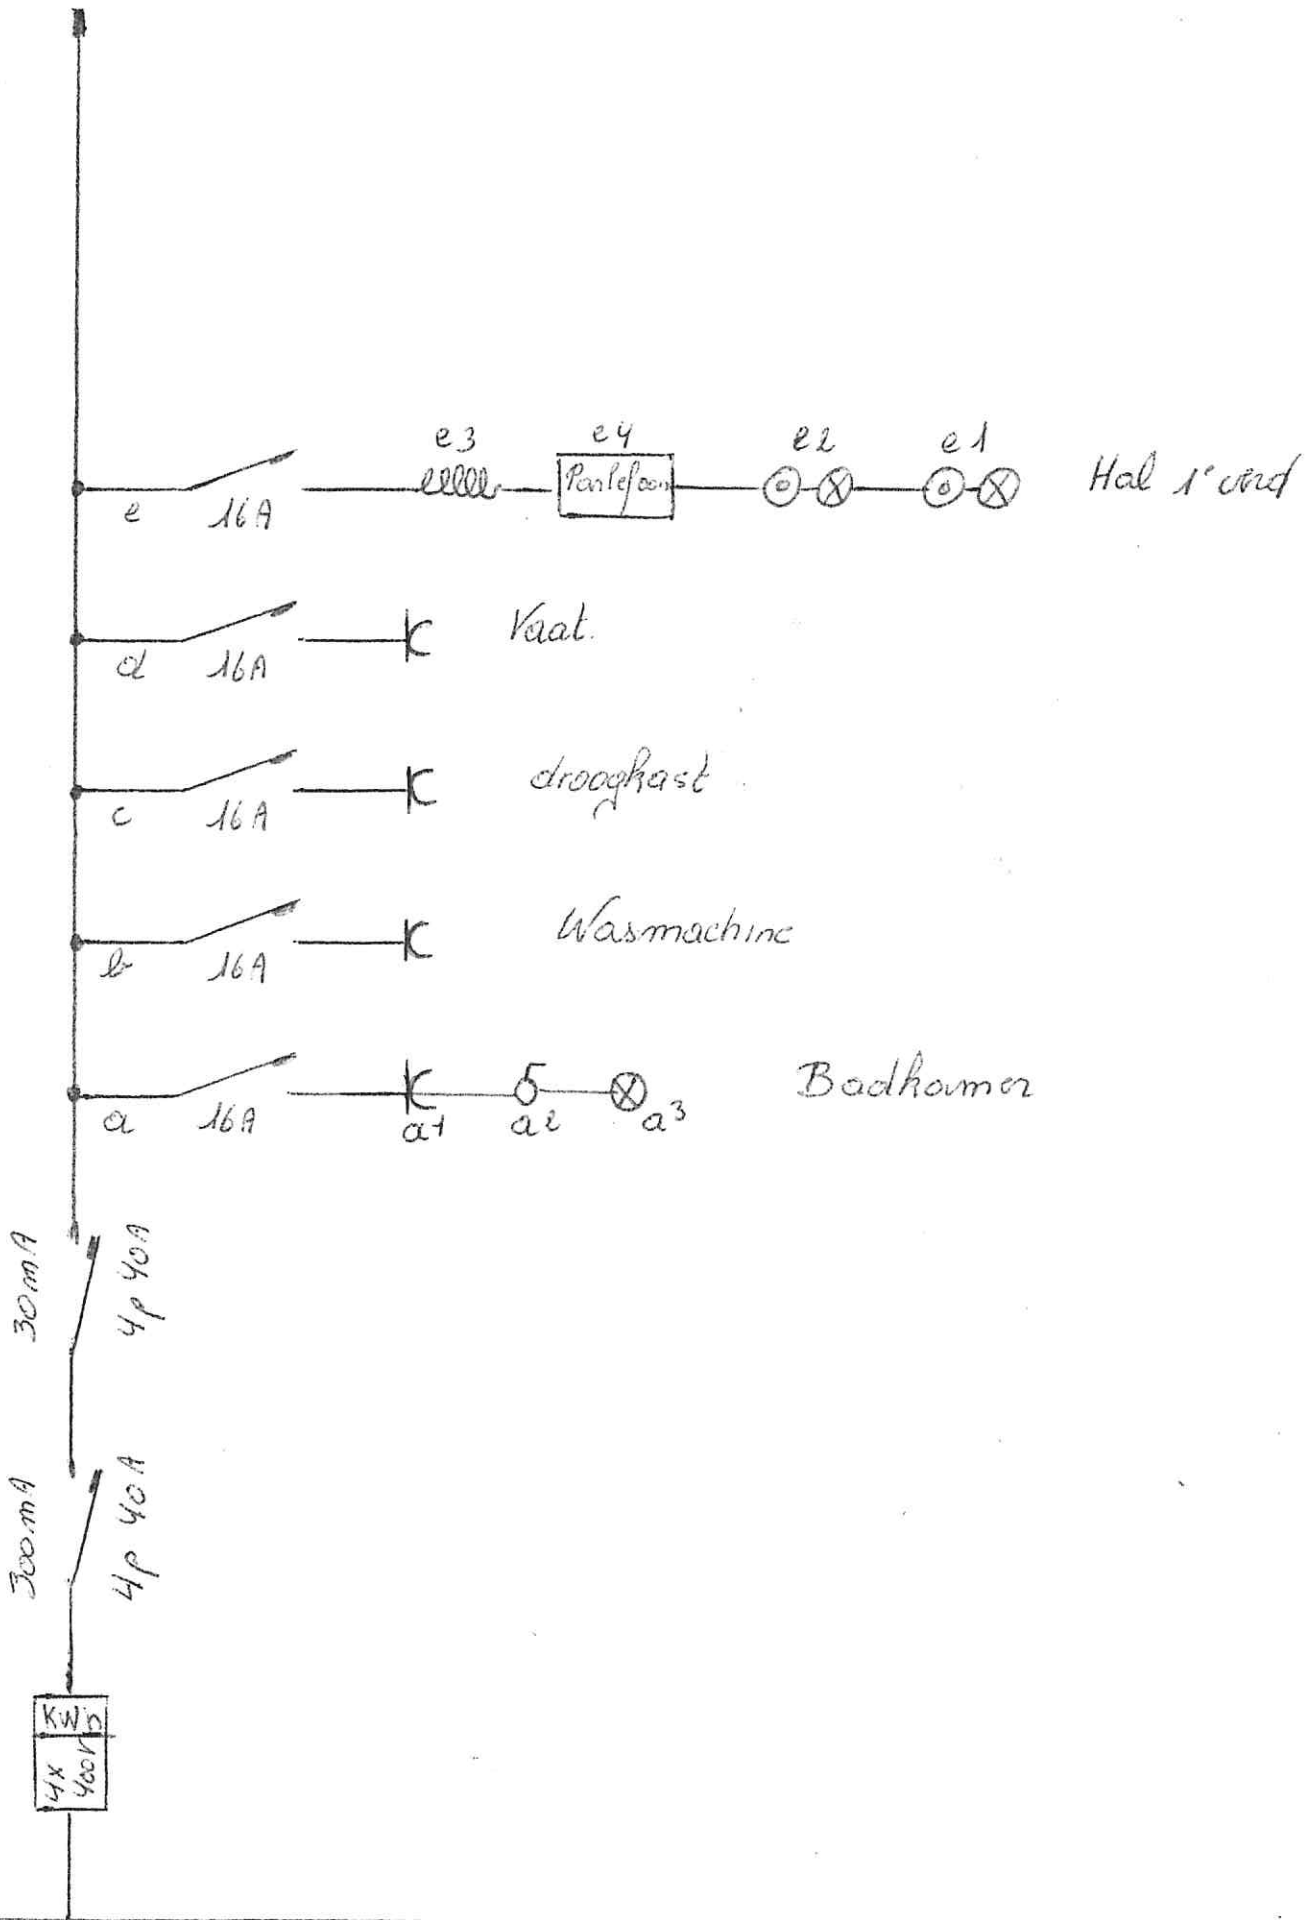 e3 e4 e2 e1
Parlefoon
Hal 1e verd
e 16A
Vaat.
d 16A
droogkast
c 16A
Wasmachine
b 16A
Badkamer
a 16A a1 a2 a3
30mA 4p 40A
300mA 4p 40A
4x
400V